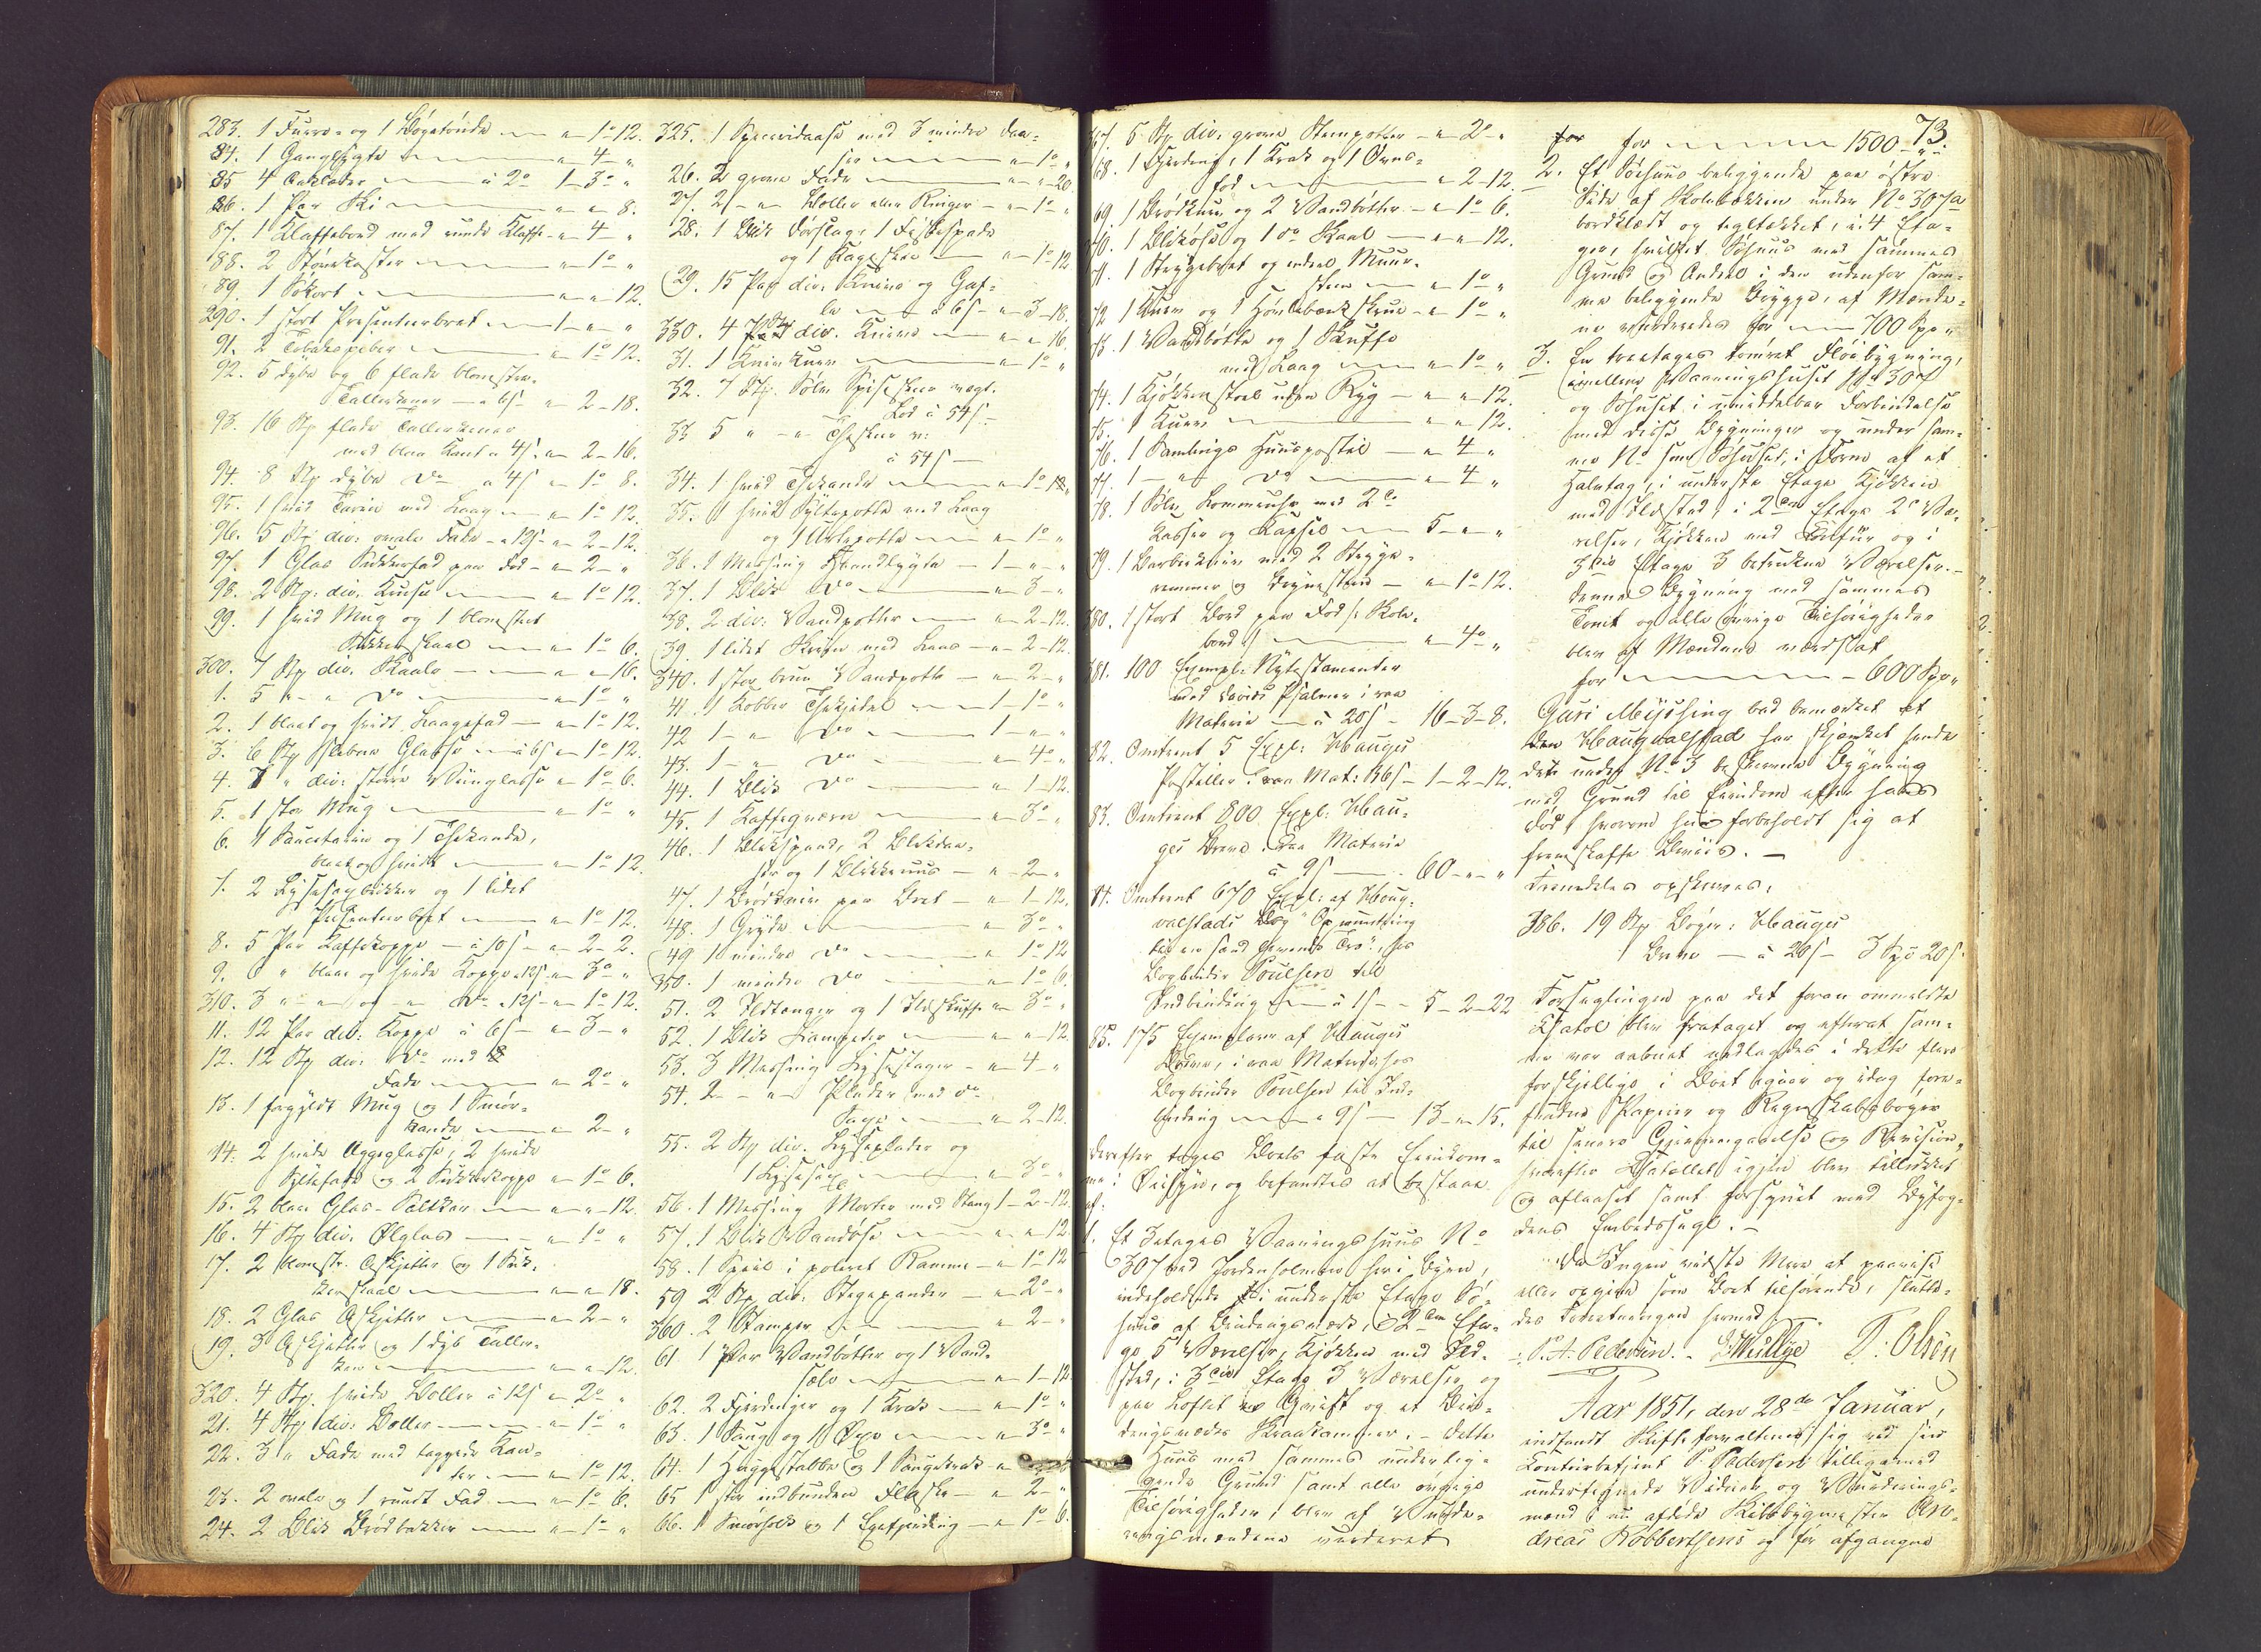 283. 1 Furre- og 1 Bøgetønde — „ 1°- 12.
84. 1 — „ 4 - „
85 4 — à 2°- 1 - 3° - „
86. 1 Par Ski — „ - „ 8.
87. 1 Klaffebord med runde Klaffe - „ 4 - „
88. 2 — „ 1° - „
89. 1 Søkort — „ - „ 12.
290. 1 stort Præsenteerbret — 1 - „ - „
91. 2 Tobakspiber — „ 1° 12.
92. 5 dybe og 6 flade blomstr.
Tallerkener — à 6 s - „ 2 - 18.
93. 16 St. flade Tallerkener
med blaa Kant à 4 s. „ 2 - 16.
94. 8 St. dybe Do à 4 s „ 1°- 8.
95. 1 hvid Terin med Laag — „ 1°- 12.
96. 5 St. div: ovale Fade - à 12 s - „ 2 - 12.
97. 1 Glas Sukkerfad paa Fod - „ 2 - „
98. 2 St. div. Kruse — „ 1°- 12.
99. 1 hvid Mug og 1 blomstret
Sukkerskaal — „ 1°- 6.
300. 7 St. div. Skaale — „ - „ 16.
1. 5 „ - „ Do — „ 1° - „
2. 1 blaat og hvidt Laagefad — „ 1°- 12.
3. 6 St. slebne Glasse — à 6 s „ 1°- 12.
4. 7 „ div: større Viinglasse „ 1°- 6.
5. 1 stor Mug — „ 1° - „
6. 1 og 1 Theekande,
blaat og hvidt — „ 1°- 12.
7. 2 og 1 lidet
Præsenteerbret — „ 1°- 12.
8. 5 Par Kaffekoppe — à 10 s - „ 2 - 2.
9. 6 „ blaae og hvide Koppe à 12 s - „ 3° - „
310. 3 „ - „ og - „ Do à 12 s - „ 1°- 12.
11. 12 Par div: Koppe à 6 s - „ 3 - „
12. 12 St. div: Do med 8
Fade — „ 2° - „
13. 1 forgyldt Mug og 1 Smør-
kande — „ 2 - „
14. 2 hvide Æggeglasse, 2 hvide
Syltefade og 2 Sukkerkoppe „ 1°- 6.
15. 2 blaa Glas-Saltkar — „ - „ 12.
16. 4 St. div. Ølglas — „ 1° - „
17. 2 blomstr. Askjetter og 1 Suk-
kerskaal — „ - „ 18.
18. 2 Glas Askjetter — „ 2 - „
19. 3 Askjetter og 1 dyb Taller-
ken — „ - „ 12.
320. 4 St. hvide Boller à 12 s „ 2° - „
21. 4 St. div: Boller — „ 1° - „
22. 3 „ Fade med taggede Kan-
ter — „ 1°- 12.
23. 2 ovale og 1 rundt Fad — „ 1°- 6.
24. 2 Blik Brødbakker — „ 1° - „
325. 1 med 3 mindre Daa-
ser — „ 1° „
26. 2 grove Fade — „ - „ 20
27. 2 - „ Boller eller Ringer - „ 1° - „
28. 1 Blik Dørslag, 1 Fiskespade
og 1 Kageskee — „ 1°- 12
29. 15 Par div: Knive og Gaf-
ler — à 6 s - „ 3 - 18.
330. 4 St. div. Knive — „ - „ 16.
31. 1 Knivkurv — „ 1° - „
32. 7 St. Sølv Spiseskeer vegt.
Lod à 54 s -
33 5 „ - „ Theskeer v:
à 54 s -
34. 1 hvid Thekande — „ 1° „
35. 1 hvid Syltepotte med Laag
og 1 — „ 1° - „
36. 1 Messing Haandlygte — 1 - „ - „
37. 1 Blik Do — „ 3 - „
38. 2 div: Vandpotter — „ 2 - 12.
39. 1 lidet Skriin med Laas — „ 2 - 12.
340. 1 stor bruun Vandpotte — „ 2 - „
41. 1 Kobber Thekjedel — 1 - 1° - „
42 1 - „ Do — 1 - „ - „
43. 1 - „ Do — „ 4° - „
44. 1 Blik Do — „ 1 - 12.
45. 1 Kaffeqværn — „ 3° - „
46. 1 Blikspand, 2 Blikdaa-
ser og 1 Blikkruus — „ 2 - „
47. 1 Brødkniv paa Bret — „ 1 - 12.
48. 1 Gryde — „ 3° „
49 1 mindre Do — „ 1°- 12
350. 1 mindre Do — „ 1°- 6.
51. 2 Ildtænger og 1 Ildskuffe „ 3° „
52. 1 Blik — „ - „ 12.
53. 3 Messing Lysestager - „ 4 - „
54. 2 - „ Plader med Do
Saxe — „ 2 - 12.
55. 2 St. div. Lyseplader og
1 Lysesax — „ 3° „
56. 1 Messing Morter med Stang 1 - 2 - 12
57. 1 Blik Vandøse — „ - „ 12
58. 1 Speil i poleret Ramme - „ 1°- 12
59 2 St. div. Stegepander — „ 2° „
360. 2 Stamper — „ 2 - „
61 1 Par Vandbøtter og 1 Vand-
sele — „ 1 - 12
62. 2 Fjerdinger og 1 Krak — „ 1° - „
63. 1 Saug og 1 Øxe — „ 3° „
64. 1 Huggestabbe og 1 Saugekrak „
65 1 stor indbunden Flaske — „ 2 - „
66. 1 Smørfold og 1 — „ 1°- 6.
367. 5 St. div. grove Steenpotter - „ 2° - „
68. 1 Fjerding, 1 Krak og 1
fod — „ 2 - 12.
69 1 Brødkurv og 2 Vandbøtter - „ 1°- 6.
70. 1 Blikøse og 1 do Skaal — „ - „ 12.
71. 1 Strygebret og endeel Muur-
steen — „ 1° „
72 1 Kurv og 1 Høvlebænkskrue - „ 1° „
73. 1 Vandbøtte og 1 Skuffe
med Laag — „ 1° „
74. 1 Kjøkkenstoel uden Ryg — „ - „ 12.
75. 1 Kurv — „ - „ 12.
76. 1 Huuspostil — „ 4 „
77. 1 - „ Do — „ 4 „
78. 1 Sølv med 2
Kasser og Kapsel — 5 - „ - „
79. 1 Barbeerkniv med 2 Stryge-
remmer og Brynesteen — „ 1°- 12.
380. 1 stort Bord paa Fod /: Skole-
bord :/ — „ 4° „
381. 100 Exempl: Nytestamenter
med Davids Psalmer i raa
Materie — à 20 s - 16 - 3 - 8.
82. Omtrent 5 Expl: Hauges
Postiller i raa Mat: 36 s - 1 - 2 - 12.
83. Omtrent 800 Expl: Hau-
ges Breve i raa Materie
à 9 s — 60 - „ - „
84. Omtrent 670 Expl: af Haug-
valstads Bog „Opmuntring
til en sand Tro“, hos
Bogbinder Poulsen til
Indbinding — à 1 s - 5 - 2 - 22
85. 175 Exemplarer af Hauges
Breve, i raa Materie, hos
Bogbinder Poulsen til Ind-
binding — à 9 s - 13 - „ 15.
Derefter toges Boets faste Eiendom-
me i Øiesyn, og befandtes at bestaae
af:
1. Et 3etages Vaaningshuus No
307 ved Jordenholmen her i Byen,
indeholdende i underste Etage Sø-
huus af Bindingsværk, i 2den Eta-
ge 5 Værelser, Kjøkken med Ild-
sted, i 3die Etage 3 Værelser og
paa Loftet en Qvist og et Bin-
dingsværks — Dette
Huus med sammes underlig-
gende Grund samt alle øvrige
Tilhørigheder, blev af Vurde-
ringsmændene vurderet
73.
for for — 1500 - „ - „
2. Et Søehuus beliggende paa østre
Side af Holebækken under No 307a
bordklædt og tegltækket, i 4 Eta-
ger, hvilket Søhuus med sammes
Grund og Andeel i den udenfor sam-
me beliggende Brygge, af Mænde-
ne vurderedes for — 700 Spd „
3. En treetages tømret Fløibygning,
imellem Vaaningshuset No 307
og Søhuset i umiddelbar Forbindelse
med disse Bygninger og under sam-
me No som Søhuset, i Form af et
Halvtag, i underste Etage Kjøkken
med Ildsted, i 2den Etage 2 Væ-
relser, Kjøkken med Comfur og i
3die Etage 3 betrukne Værelser. —
Denne Bygning med sammes
Tomt og alle øvrige Tilhørigheder
blev af Mændene værdsat
for — 600 Spd „
Guri Meyssing bad bemærket at
Haugvalstad har skjænket hende
den under No 3 beskrevne Bygning
med Grund til Eiendom efter hans
Død, hvorom hun forbeholdt sig at
fremskaffe Beviis. —
Fremdeles opskreves,
386. 19 St. Bøger: Hauges
Breve — à 20 s - 3 Spd 20 s.
Forseglingen paa det foran ommeldte
Chatol blev frataget og efterat sam-
me var aabnet nedlagdes i dette flere
forskjellige i Boet og idag fore-
fundne Papirer og Regnskabsbøger
til senere Gjennemgaaelse og Revision,
hvorefter Chatollet igjen blev tillukket
og aflaaset samt forsynet med Byfog-
dens Embedssegl. —
Da Ingen vidste Mere at paavise
eller opgive som Boet tilhørende, slutte-
des Forretningen hermed
P. A. Pedersen. T: Olsen
Aar 1851, den 28de Januar,
indfandt Skifteforvalteren sig ved sin
Contoirbetjent P. Pedersen tilligemed
undertegnede Vidner og Vurderings-
mænd i nu afdøde Skibbygmester An-
dreas Robbertsens og før afgangne